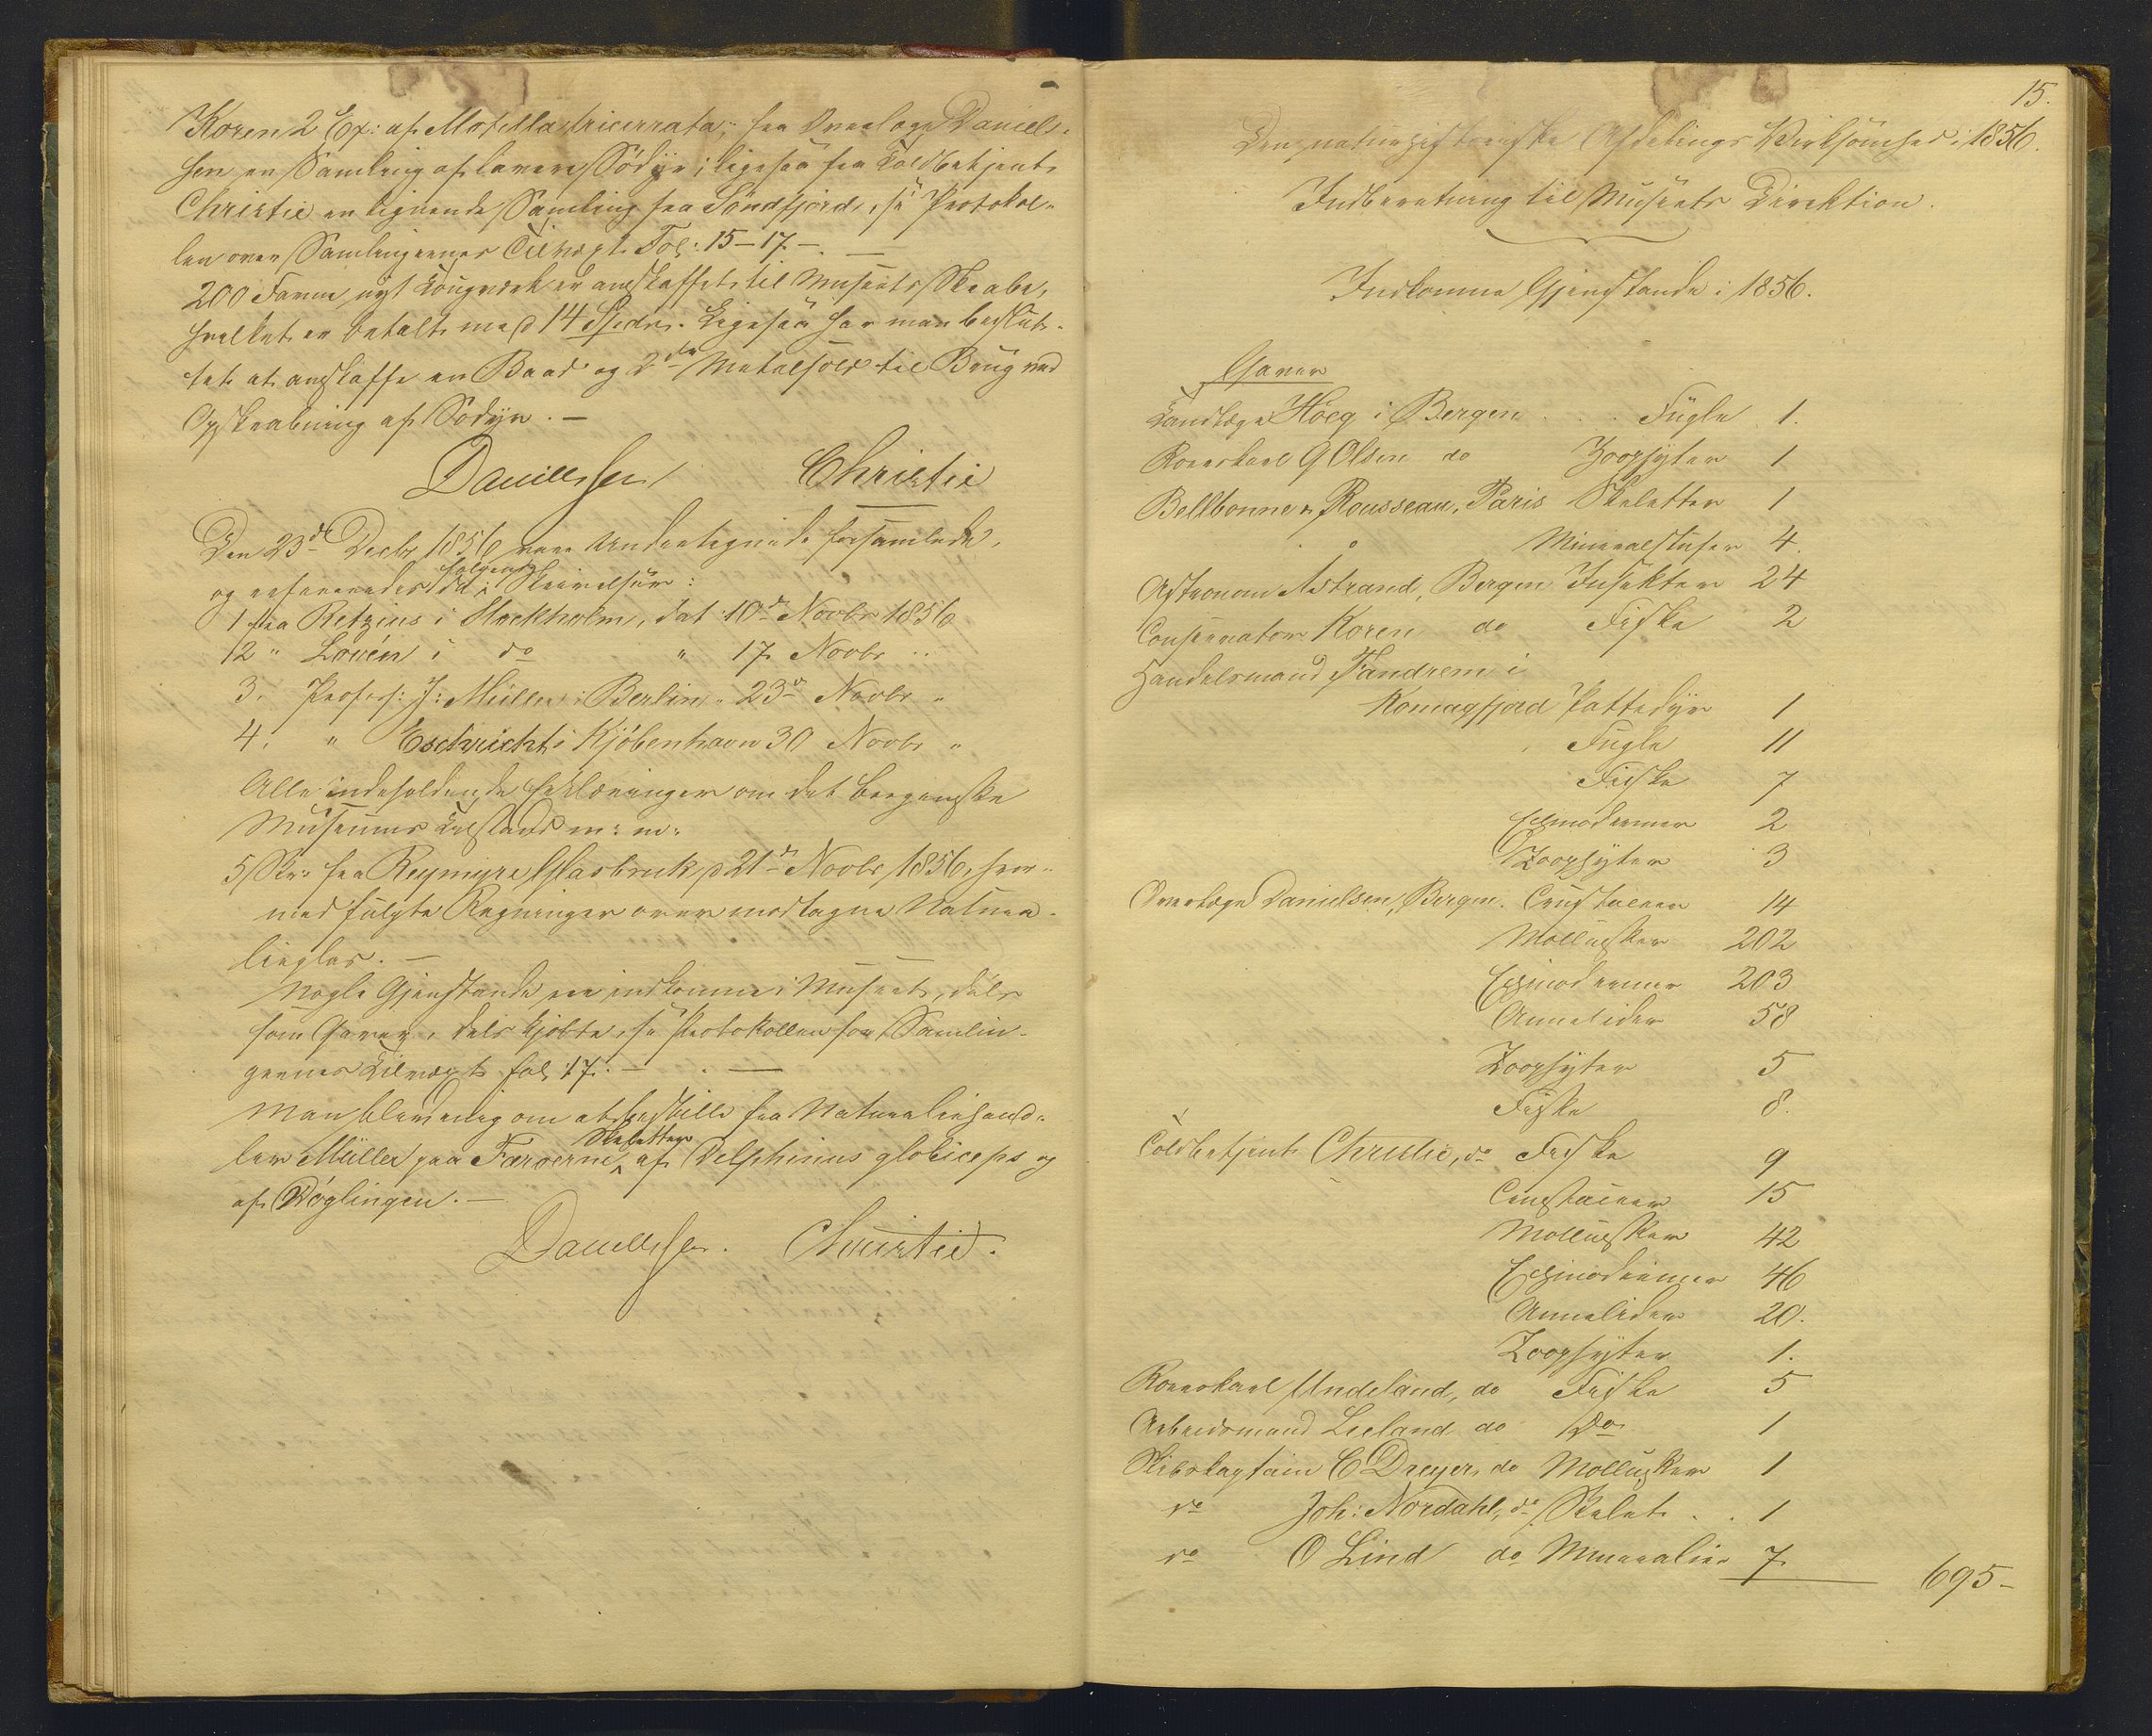 Koren 2 Ex: af Motella tricirrata; fra Overlæge Daniels-
sen en Samling af lavere Södyr; ligesaa fra Toldbetjent
Christie en lignende Samling fra Söndfjord, se Protokol-
len over Samlingernes Tilvæxt Fol: 15-17. —
200 Favne nyt Tougværk er anskaffet til Museets Skrabe,
hvilket er betalt med 14 Spdr. Ligesaa har man beslut-
tet at anskaffe en Baad og 2de til Brug ved
Opskrabning af Södyr. —
Danielssen Christie
Den 23de Decbr 1856 vare Undertegnede forsamlede,
og refereredes da følgende Skrivelser:
1 fra Retzius i Stockholm, dat 10de Novbr 1856
2 " Lovén i do " 17 Novbr "
3. Profess: J: Müller i Berlin " 23de Novbr "
4. " Eschricht i Kjöbenhavn 30 Novbr "
Alle indeholdende Erklæringer om det bergenske
Museums Tilstand m: m:
5 Skr: fra Reymyre Glasbruk d 21de Novbr 1856, hvor-
med fulgte Regninger over modtagne Natura-
lieglas. —
Nogle Gjenstande ere indkomne i Museet, dels
som Gaver, dels kjøbte, se Protokollen for Samlin-
gernes Tilvæxt fol: 17. —
Man blev enig om at bestille fra Naturaliehand-
ler Müller paa Færöerne Skeletter af Delphinus globiceps og
af Döglingen. —
Danielssen. Christie.
15.
Den naturhistoriske Afdelings Virksomhed i 1856.
Indberetning til Museets Direktion.
Indkomne Gjenstande i 1856.
Gaver
Landlæge Höeg i Bergen . . . Fugle 1.
Roerskarl G Olsen do Zoophyter 1
Rousseau, Paris Skeletter 1
Mineralstufer 4.
Astronom Åstrand, Bergen Insekter 24
Conservator Koren do Fiske 2
Handelsmand Fandrem i
Komagfjord Pattedyr 1
Fugle 11
Fiske 7
Echinodermer 2
Zoophyter 3
Overlæge Danielsen, Bergen. Crustaceer 14
Mollusker 202
Echinodermer 203
Annelider 58
Zoophyter 5
Fiske 8.
Toldbetjent Christie, do Fiske 9
Crustaceer 15
Mollusker 42
Echinodermer 46
Annelider 20.
Zoophyter 1.
Roerskarl Undeland, do Fiske 5
Arbeidsmand Leeland do Do 1
Skibskaptain C Dreyer, do Mollusker 1
do Joh: Nordahl, do Skelet . . 1
do O Lind do Mineralier 7
695-